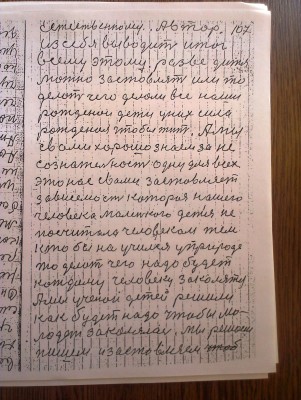 естественному. Автор. 167
из себя выводит итог
всему этому, разве детя
можно заставлят или то
делат чего делали все наши
рождении дети у них сила
рождения чтобы жит. А мы
с вами хорошо знаем за не
сознателност одну для всех
это нас с вами заставляет
зависемост которая нашего
человека маленкого детя не
посчитала человеком тем
кто бы на училися у природе
то делат чего надо будет
каждому человеку закалят
А мы ученой детей решили
как будет надо чтобы мо-
лодеж закалялас. мы решили
пишем и заставляем